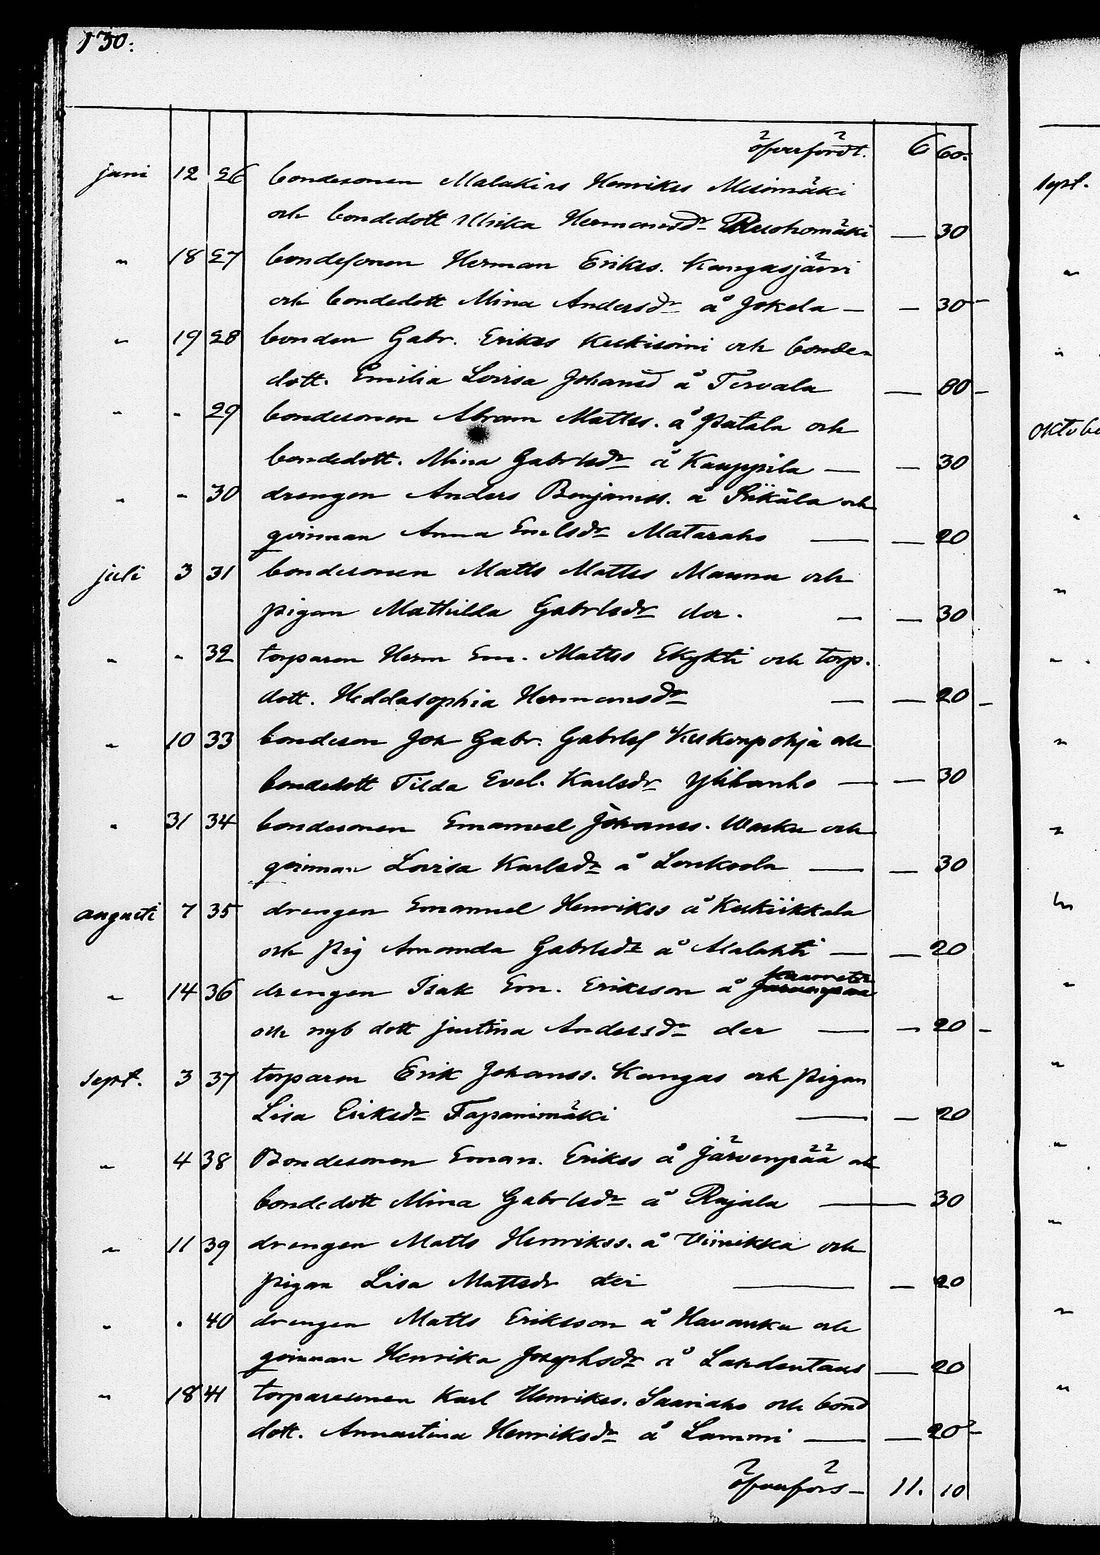 130:
öfverfördt. 6 60.
juni 12 26 bondesonen Malakias Henrikss Mesimäki
och bondedott Ulrika Hermansdr Ruohomäki — 30
" 18 27 bondesonen Herman Erikss. Kangasjärvi
och bondedott Mina Andersdr å Jokela — — 30 —
" 19 28 bonden Gabr. Erikss Keskisoini och bonde-
dott. Emilia Lovisa Johansd å Tervala — 80 —
" " 29 bondesonen Abram Mattss. å Patala och
bondedott. Mina Gabrlsdr å Kauppila — — 30
" " 30 drengen Anders Benjamss. å Pirkäla och
qvinnan Anna Emlsdr Mataraho — — 20
juli 3 31 bondesonen Matts Mattss Maunu och
pigan Mathilda Gabrlsdr der. — — 30
" " 32 torparen Herm Em. Mattss och torp.
dott. Heddasophia Hermansdr — — 20 —
" 10 33 bondeson Joh Gabr. Gabrlss Keskenpohja och
bondedott Tilda Evel. Karlsdr Ylihanho — — 30
" 31 34 bondesonen Emanuel Johanss. och
qvinnan Lovisa Karlsdr å Loukoola — 30
augusti 7 35 drengen Emanuel Henrikss å Keskiikkala
och pig Amanda Gabrlsdr å Alalahti — — 20
" 14 36 drengen Isak Em. Eriksson å
och nyb dott justina Andersdr der — — 20 —
sept. 3 37 torparen Erik Johanss. Kangas och pigan
Lisa Eriksdr Tapanimäki — — 20
" 4 38 Bondesonen Eman. Erikss å Järvenpää och
bondedott Mina Gabrlsdr å Rajala — — 30
" 11 39 drengen Matts Henrikss. å Viinikka och
pigan Lisa Mattsdr der — — 20
" " 40 drengen Matts Eriksson å Havanka och
qvinnan Henrika Josephsdr å Lahdentaus — 20
" 18 41 torparesonen Karl Henrikss. Saariaho och bond
dott. Annastina Henriksdr å Lammi — — 20 —
öfverförs — 11. 10
sept.
"
"
oktobe
"
"
"
"
"
"
"
"
"
"
"
"